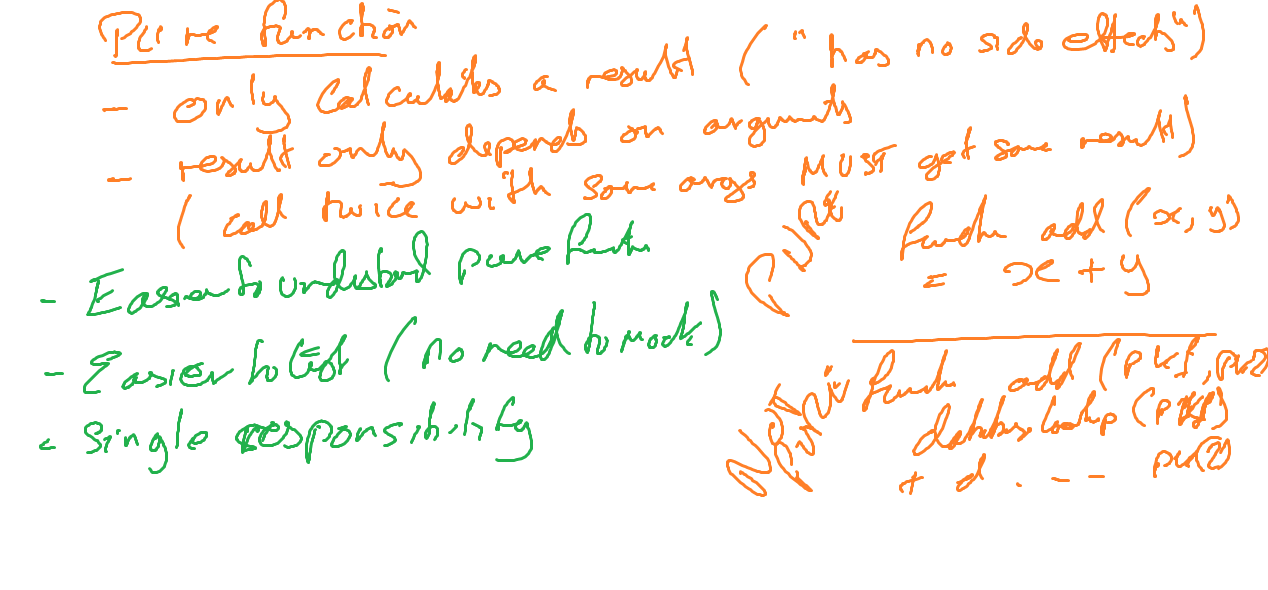 Pure function
- only calculates a result ("has no side effects")
- result only depends on arguments
(call twice with same args MUST get same result)
- Easier to understand pure function
- Easier to test (no need to mock)
- Single responsibility
PURE
function add (x, y)
= x + y
NOT PURE
function add (pk1, pk2)
database lookup (pk1)
+ d . - - pk(2)